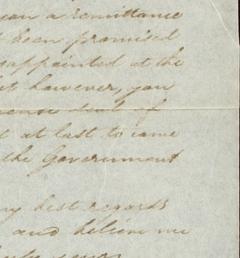 a remittance
been promised
appointed at the
however, you
deal of
at last to came
the Government
my best regards
and believe me